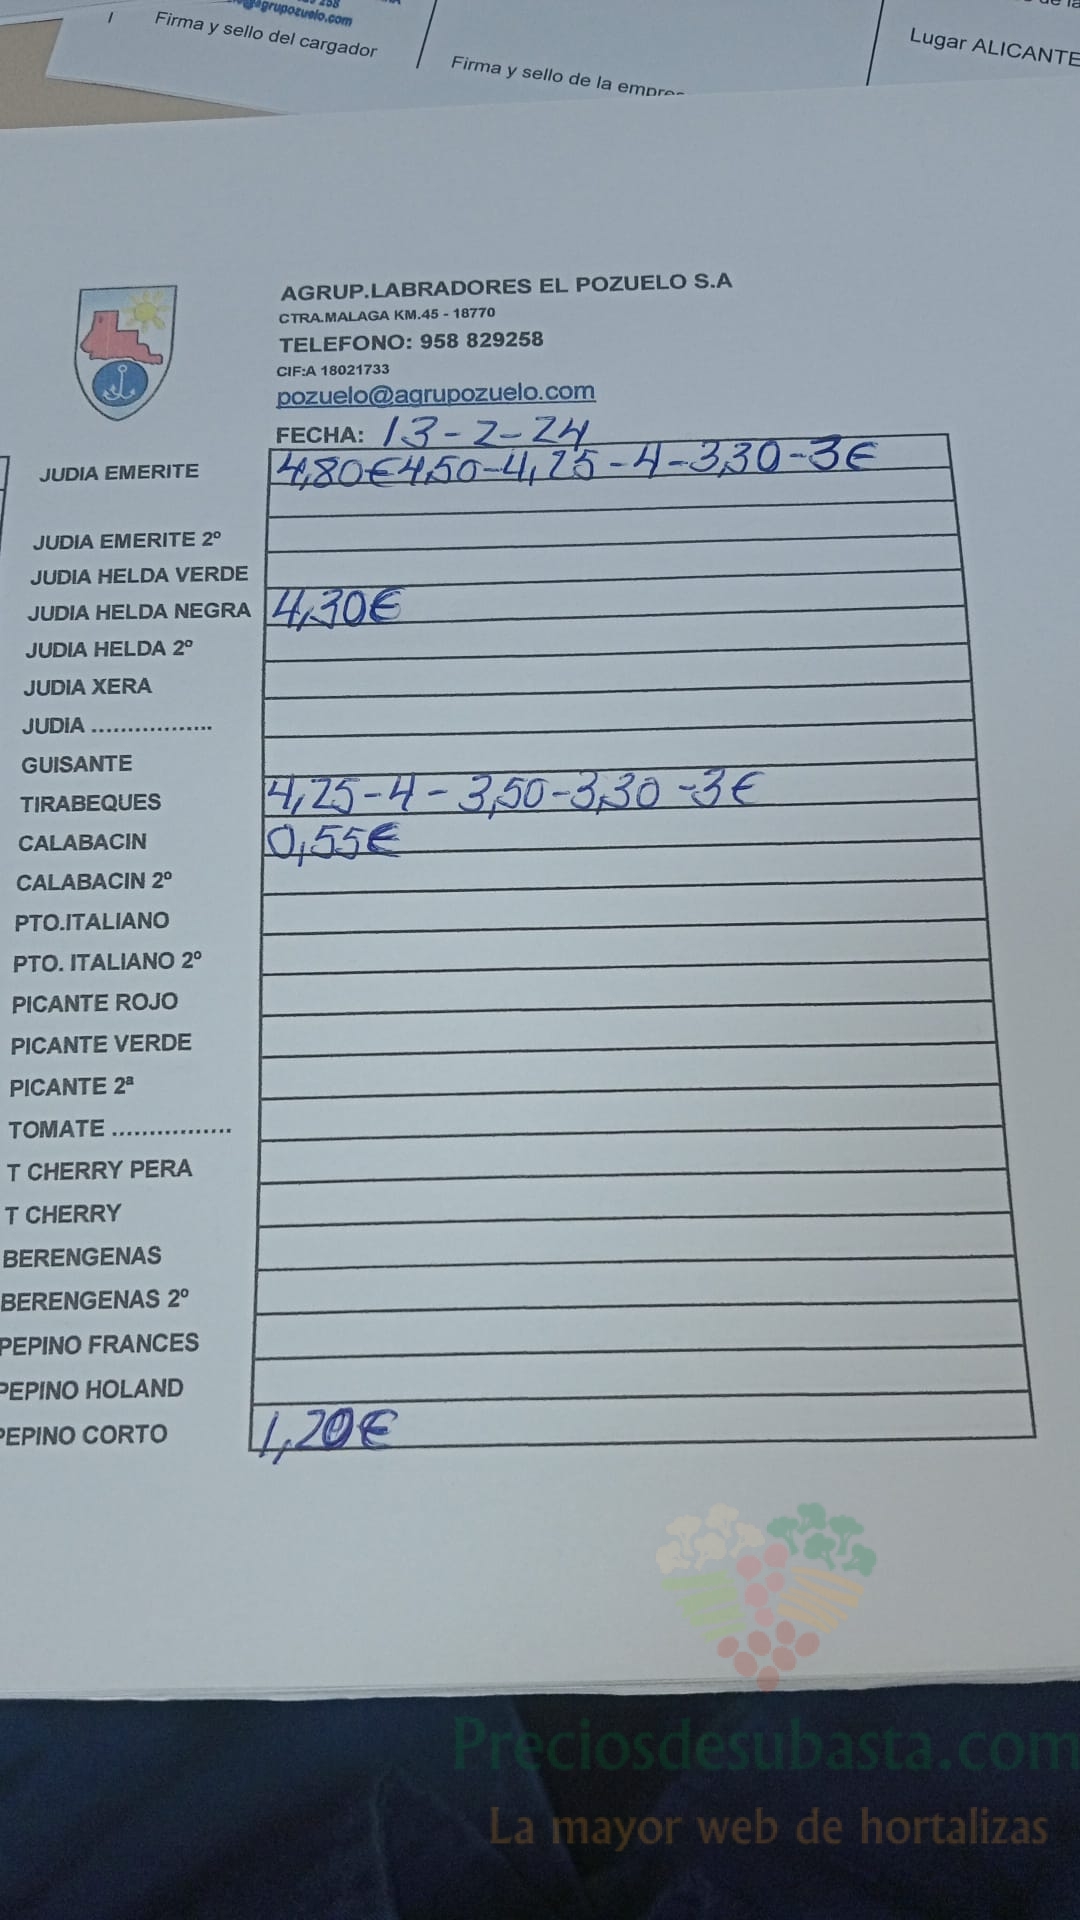 @agrupozuelo.com
Firma y sello del cargador
Firma y sello de la empre
Lugar ALICANTE
AGRUP.LABRADORES EL POZUELO S.A
CTRA.MALAGA KM.45 - 18770
TELEFONO: 958 829258
CIF:A 18021733
pozuelo@agrupozuelo.com
FECHA: 13-2-24
JUDIA EMERITE 4,80€ 4,50-4,25-4-3,30-3€
JUDIA EMERITE 2º
JUDIA HELDA VERDE
JUDIA HELDA NEGRA 4,30€
JUDIA HELDA 2º
JUDIA XERA
JUDIA .................
GUISANTE
TIRABEQUES 4,25-4-3,50-3,30-3€
CALABACIN 0,55€
CALABACIN 2º
PTO.ITALIANO
PTO. ITALIANO 2º
PICANTE ROJO
PICANTE VERDE
PICANTE 2ª
TOMATE ................
T CHERRY PERA
T CHERRY
BERENGENAS
BERENGENAS 2º
PEPINO FRANCES
PEPINO HOLAND
PEPINO CORTO 1,20€
Preciosdesubasta.com
La mayor web de hortalizas